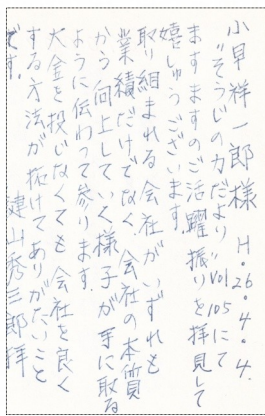 小早祥一郎様　H.26.4.4.
"そうじの力だより"vol 105にて
ますますのご活躍振りを拝見して
嬉しゅうございます。
取り組まれる会社がいずれも
業績だけでなく、会社の本質
から向上していく様子が手に取る
ように伝わって参ります。
大金を投じなくても会社を良く
する方法が拓けてありがたいこと
です。　鍵山秀三郎拝